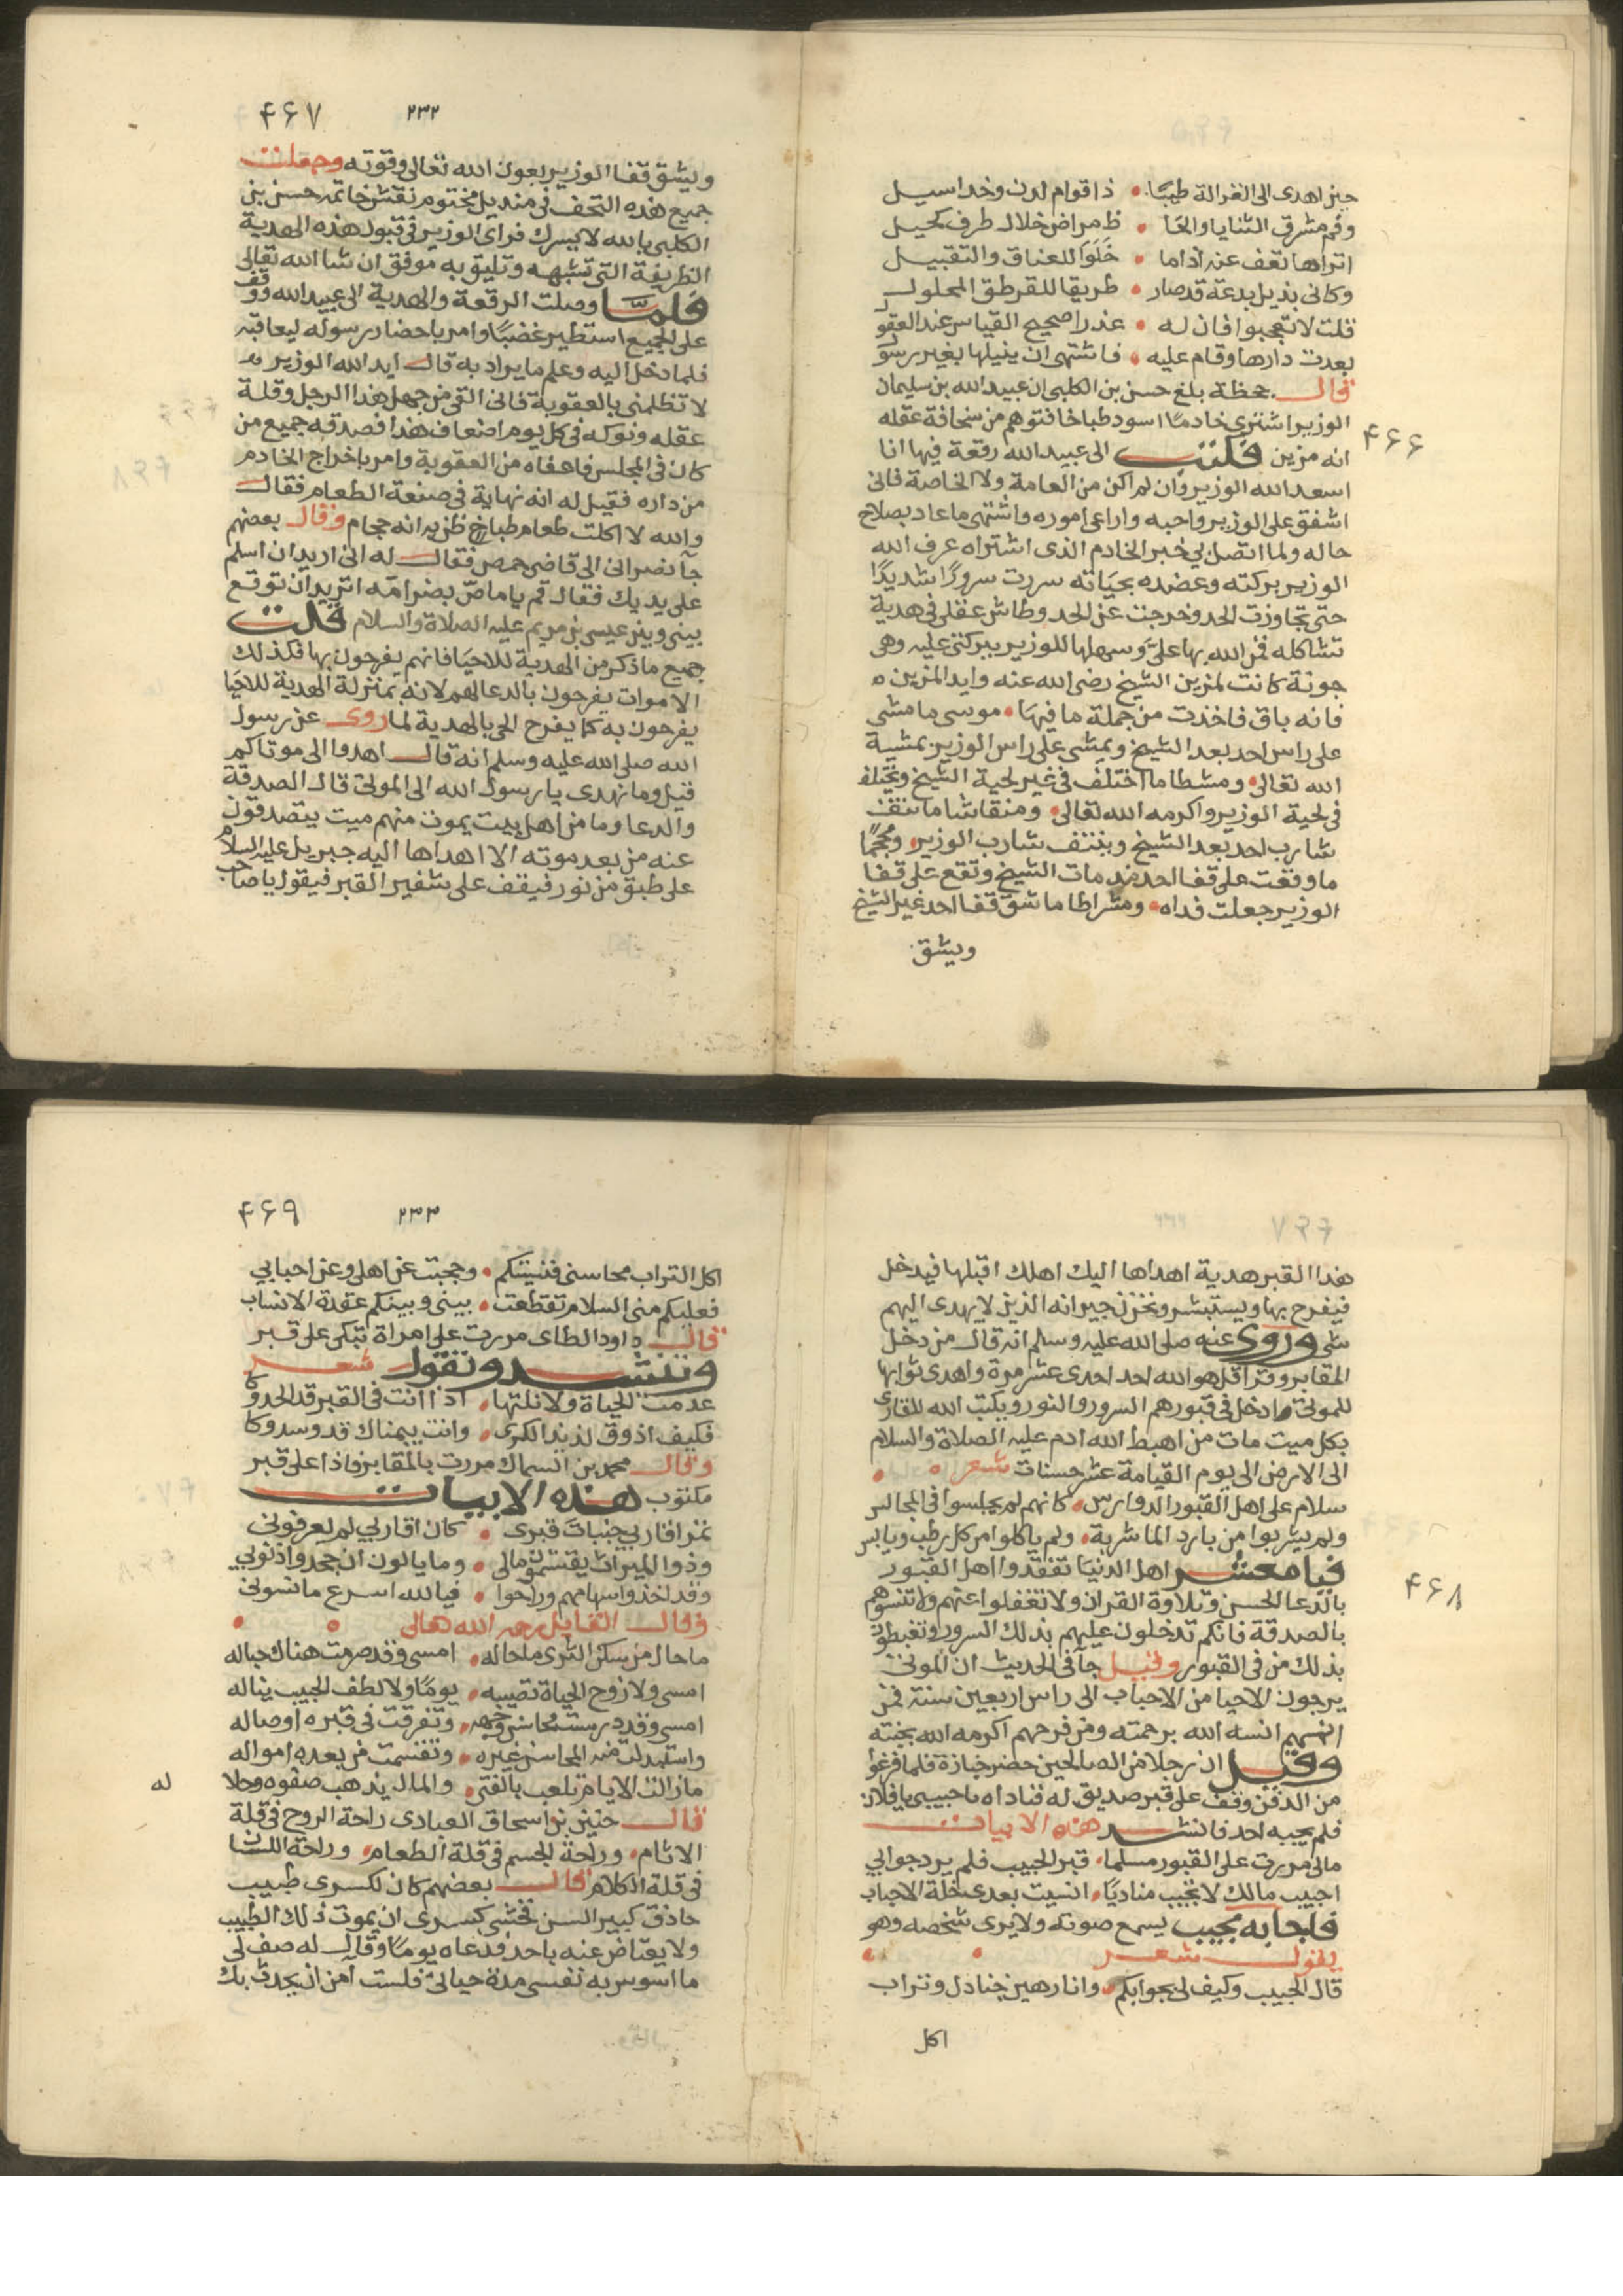 حين اهدى الى الغزالة طيبًا • ذا قوام لدن وخد اسيل
وفم مشرق الثنايا والخا • ظ مراض خلال طرف كحيل
اتراها تعف عنه اذا ما • خلوا للعناق والتقبيل
وكانى بذيل بدعة قد صار • طريقا للقرطق المحلول
قلت لا تعجبوا فان له • عذرا صحيح القياس عند العقو
بعدت دارها وقام عليه • فاشتهى ان ينيلها بغير رسو
قال جحظة بلغ حسن بن الكلبى ان عبيد الله بن سليمان
الوزير اشترى خادمًا اسود طباخا فتوهم من سخافة عقله
۴۶۶
انه مزين فكتب الى عبيد الله رقعة فيها انا
اسعد الله الوزير وان لم اكن من العامة ولا الخاصة فانى
اشفق على الوزير واحبه واراعى اموره واشتهى ما عاد بصلاح
حاله ولما اتصل بي خبر الخادم الذى اشتراه عرف الله
الوزير بركته وعضده بحياته سررت سرورًا شديدًا
حتى تجاوزت الحد وخرجت عن الحد وطاش عقلى فى هدية
تشاكله فمن الله بها علىّ وسهلها للوزير ببركتى عليه وهى
جونة كانت لمزين الشيخ رضى الله عنه وايد المزين
فانه باق فاخذت من جملة ما فيها • موسى ما مشى
على راس احد بعد الشيخ ويمشى على راس الوزير بمشية
الله تعالى • ومشطا ما اختلف فى غير لحية الشيخ ويختلف
فى لحية الوزير واكرمه الله تعالى • ومنقاشا ما نتف
شارب احد بعد الشيخ وينتف شارب الوزير • ومحجمًا
ما وقعت على قفا احد منذ مات الشيخ وتقع على قفا
الوزير جعلت فداه • ومشراطا ما شق قفا احد غير الشيخ
ويشق
۴۶۷ ٢٣٢
ويشق قفا الوزير بعون الله تعالى وقوته وجعلت
جميع هذه التحف فى منديل مختوم نقش خاتمه حسن بن
الكلبى بالله لا يسرك فراى الوزير فى قبول هذه الهدية
الظريفة التى تشبهه وتليق به موفق ان شا الله تعالى
فلما وصلت الرقعة والهدية الى عبيد الله ووقف
على الجميع استطير غضبًا وامر باحضار رسوله ليعاقبه
فلما دخل اليه وعلم ما يراد به قال ايد الله الوزير
لا تظلمنى بالعقوبة فانى القى من جهل هذا الرجل وقلة
عقله ونوكه فى كل يوم اضعاف هذا فصدقه جميع من
كان فى المجلس فاعفاه من العقوبة وامر باخراج الخادم
من داره فقيل له انه نهاية فى صنعة الطعام فقال
والله لا اكلت طعام طباخ ظن به انه حجام وقال بعضهم
جآ نصرانى الى قاضى حمص فقال له انى اريد ان اسلم
على يديك فقال قم يا ماصّ بضر امه اتريد ان توقع
بينى وبين عيسى بن مريم عليه الصلاة والسلام قلت
جميع ما ذكر من الهدية للاحيا فانهم يفرحون بها فكذلك
الاموات يفرحون بالدعا لهم لانه بمنزلة الهدية للاحيا
يفرحون به كما يفرح الحى بالهدية لما روى عن رسول
الله صلى الله عليه وسلم انه قال اهدوا الى موتاكم
قيل وما نهدى يا رسول الله الى الموتى قال الصدقة
والدعا وما من اهل بيت يموت منهم ميت يتصدقون
عنه من بعد موته الا اهداها اليه جبريل عليه السلام
على طبق من نور فيقف على شفير القبر فيقول يا صاحب
هذا القبر هدية اهداها اليك اهلك اقبلها فيدخل
فيفرح بها ويستبشر وتحزن جيرانه الذين لا يهدى اليهم
شى وروى عنه صلى الله عليه وسلم انه قال من دخل
المقابر وقرا قل هو الله احد احدى عشر مرة واهدى ثوابها
للموتى ادخل فى قبورهم السرور والنور ويكتب الله للقارى
بكل ميت مات من اهبط الله ادم عليه الصلاة والسلام
الى الارض الى يوم القيامة عشر حسنات شعر
سلام على اهل القبور الدوارس • كانهم لم يجلسوا فى المجالس
ولم يشربوا من بارد الما شربة • ولم ياكلوا من كل رطب ويابس
فيا معشر اهل الدنيا تفقدوا اهل القبور
۴۶۸
بالدعا الحسن وتلاوة القران ولا تغفلوا عنهم ولا تنسوهم
بالصدقة فانكم تدخلون عليهم بذلك السرور وتغبطون
بذلك من فى القبور وقيل جآ فى الحديث ان الموتى
يرجون الاحيا من الاحباب الى راس اربعين سنة فمن
انسهم انسه الله برحمته ومن فرحهم اكرمه الله بجنته
وقيل ان رجلا من الصالحين حضر جنازة فلما فرغوا
من الدفن وقف على قبر صديق له فناداه يا حبيبى يا فلان
فلم يجبه احد فانشد هذه الابيات
مالى مررت على القبور مسلما • قبر الحبيب فلم يرد جوابي
احبيب مالك لا تجيب مناديًا • انسيت بعدى خلة الاحباب
فاجابه مجيب يسمع صوته ولا يرى شخصه وهو
يقول شعر
قال الحبيب وكيف لى بجوابكم • وانا رهين جنادل وتراب
اكل
۴۶۹ ٢٣٣
اكل التراب محاسنى فنسيتكم • وحجبت عن اهلى وعن احبابي
فعليكم منى السلام تقطعت • بينى وبينكم عقدة الانساب
قال داود الطاى مررت على امراة تبكى على قبر
وتنشد وتقول شعر
عدمت الحياة ولا نلتها • اذا انت فى القبر قد الحدوكا
فكيف اذوق لذيذ الكرى • وانت بيمناك قد وسدوكا
وقال محمد بن السماك مررت بالمقابر فاذا على قبر
مكتوب هذه الابيات
تمر اقاربي جنبات قبرى • كان اقاربي لم يعرفونى
وذوا الميراث يقتسمون مالى • وما يالون ان جحدوا ذنوبي
وقد اخذوا سهامهم وراحوا • فيا لله اسرع ما نسونى
وقال القايل رحمه الله تعالى
ما حال من سكن الثرى ما حاله • امسى وقد صرمت هناك حباله
امسى ولا روح الحياة تصيبه • يومًا ولا لطف الحبيب يناله
امسى وقد درست محاسن وجهه • وتفرقت فى قبره اوصاله
واستبدلت منه المحاسن غيره • وتقسمت من بعده امواله
ما زالت الايام تلعب بالفتى • والمال يذهب صفوه وحلا
له
قال حنين بن اسحاق العبادى راحة الروح فى قلة
الاثام • وراحة الجسم فى قلة الطعام • وراحة اللسان
فى قلة الكلام قال بعضهم كان لكسرى طبيب
حاذق كبير السن فخشى كسرى ان يموت ذلك الطبيب
ولا يعتاض عنه باحد فدعاه يومًا وقال له صف لى
ما اسوس به نفسى مدة حياتى فلست آمن ان يحدث بك